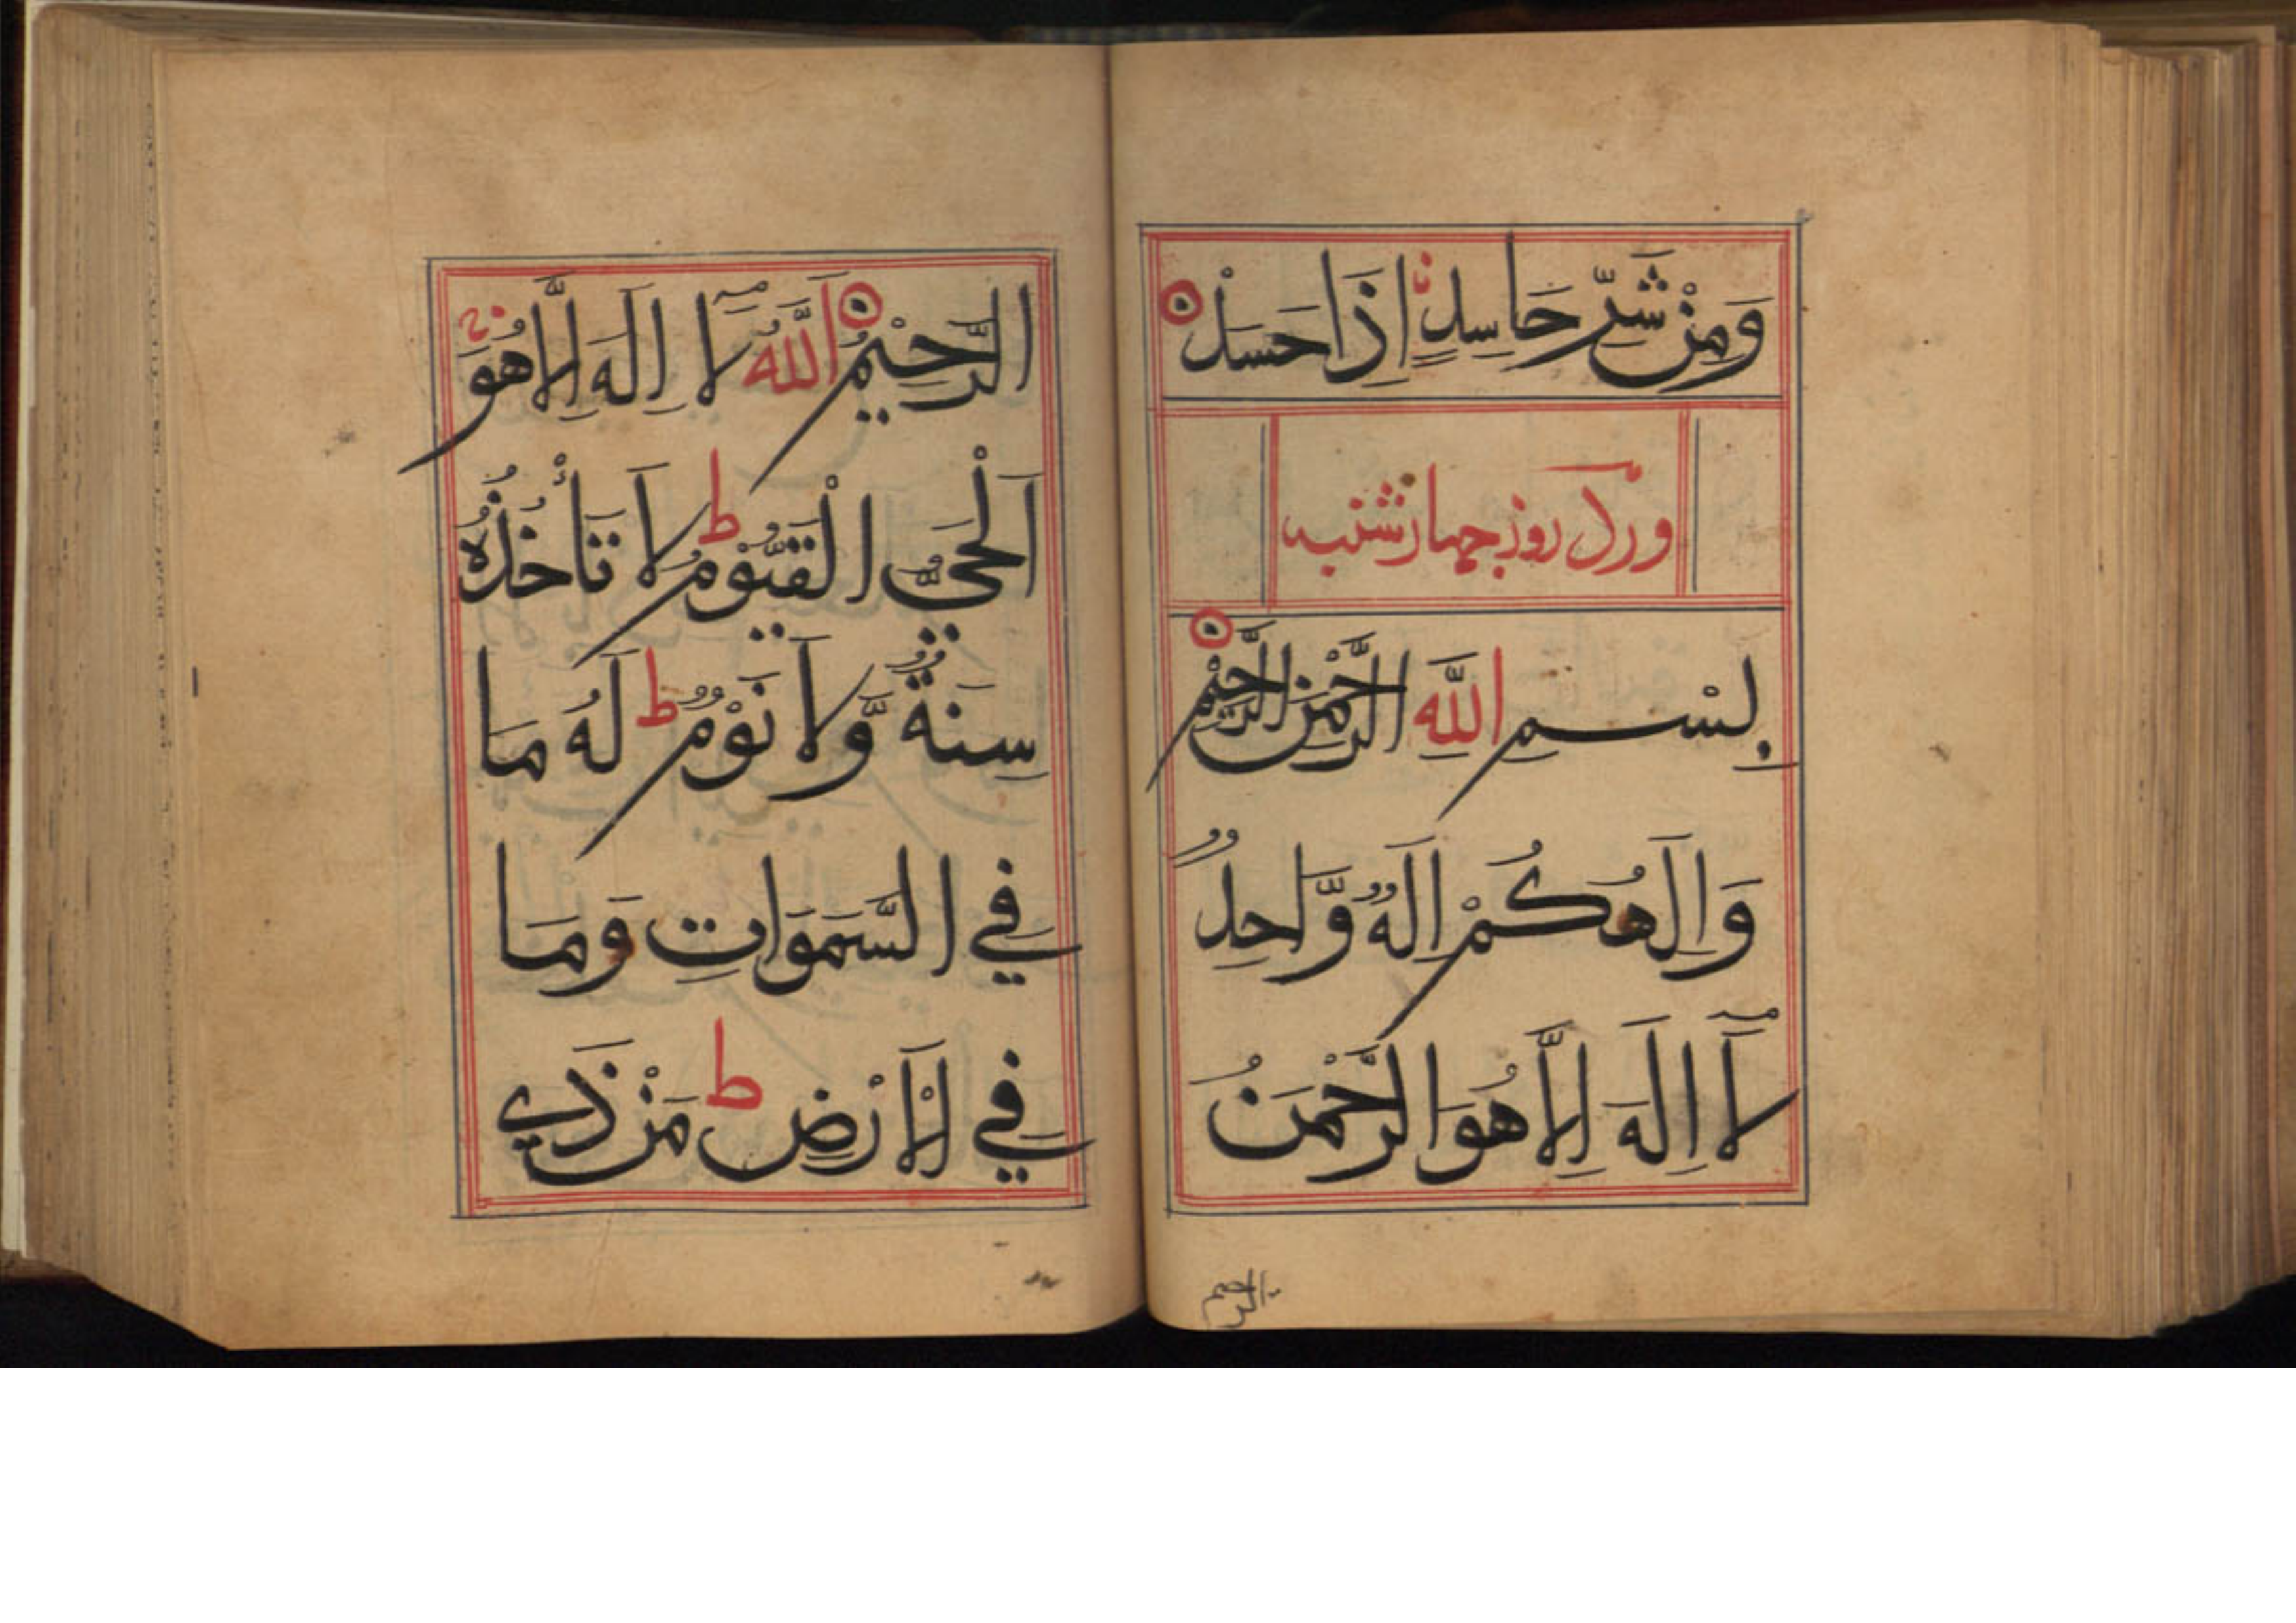 وَمِنْ شَرِّ حَاسِدٍ اِذَا حَسَدْ
ورد روز چهارشنبه
بِسْمِ اللّٰهِ الرَّحْمٰنِ الرَّحِيْمِ
وَاِلَهُكُمْ اِلَهٌ وَّاحِدٌ
لَآ اِلَهَ اِلَّا هُوَ الرَّحْمَنُ
الرحیم
الرَّحِيْمُ اَللَّهُ لَآ اِلَهَ اِلَّا هُوَ
اَلْحَيُّ الْقَيُّوْمُ ط لَا تَأْخُذُهُ
سِنَةٌ وَّلَا نَوْمٌ ط لَهُ مَا
فِي السَّمَوَاتِ وَمَا
فِي الْاَرْضِ ط مَنْ ذَي